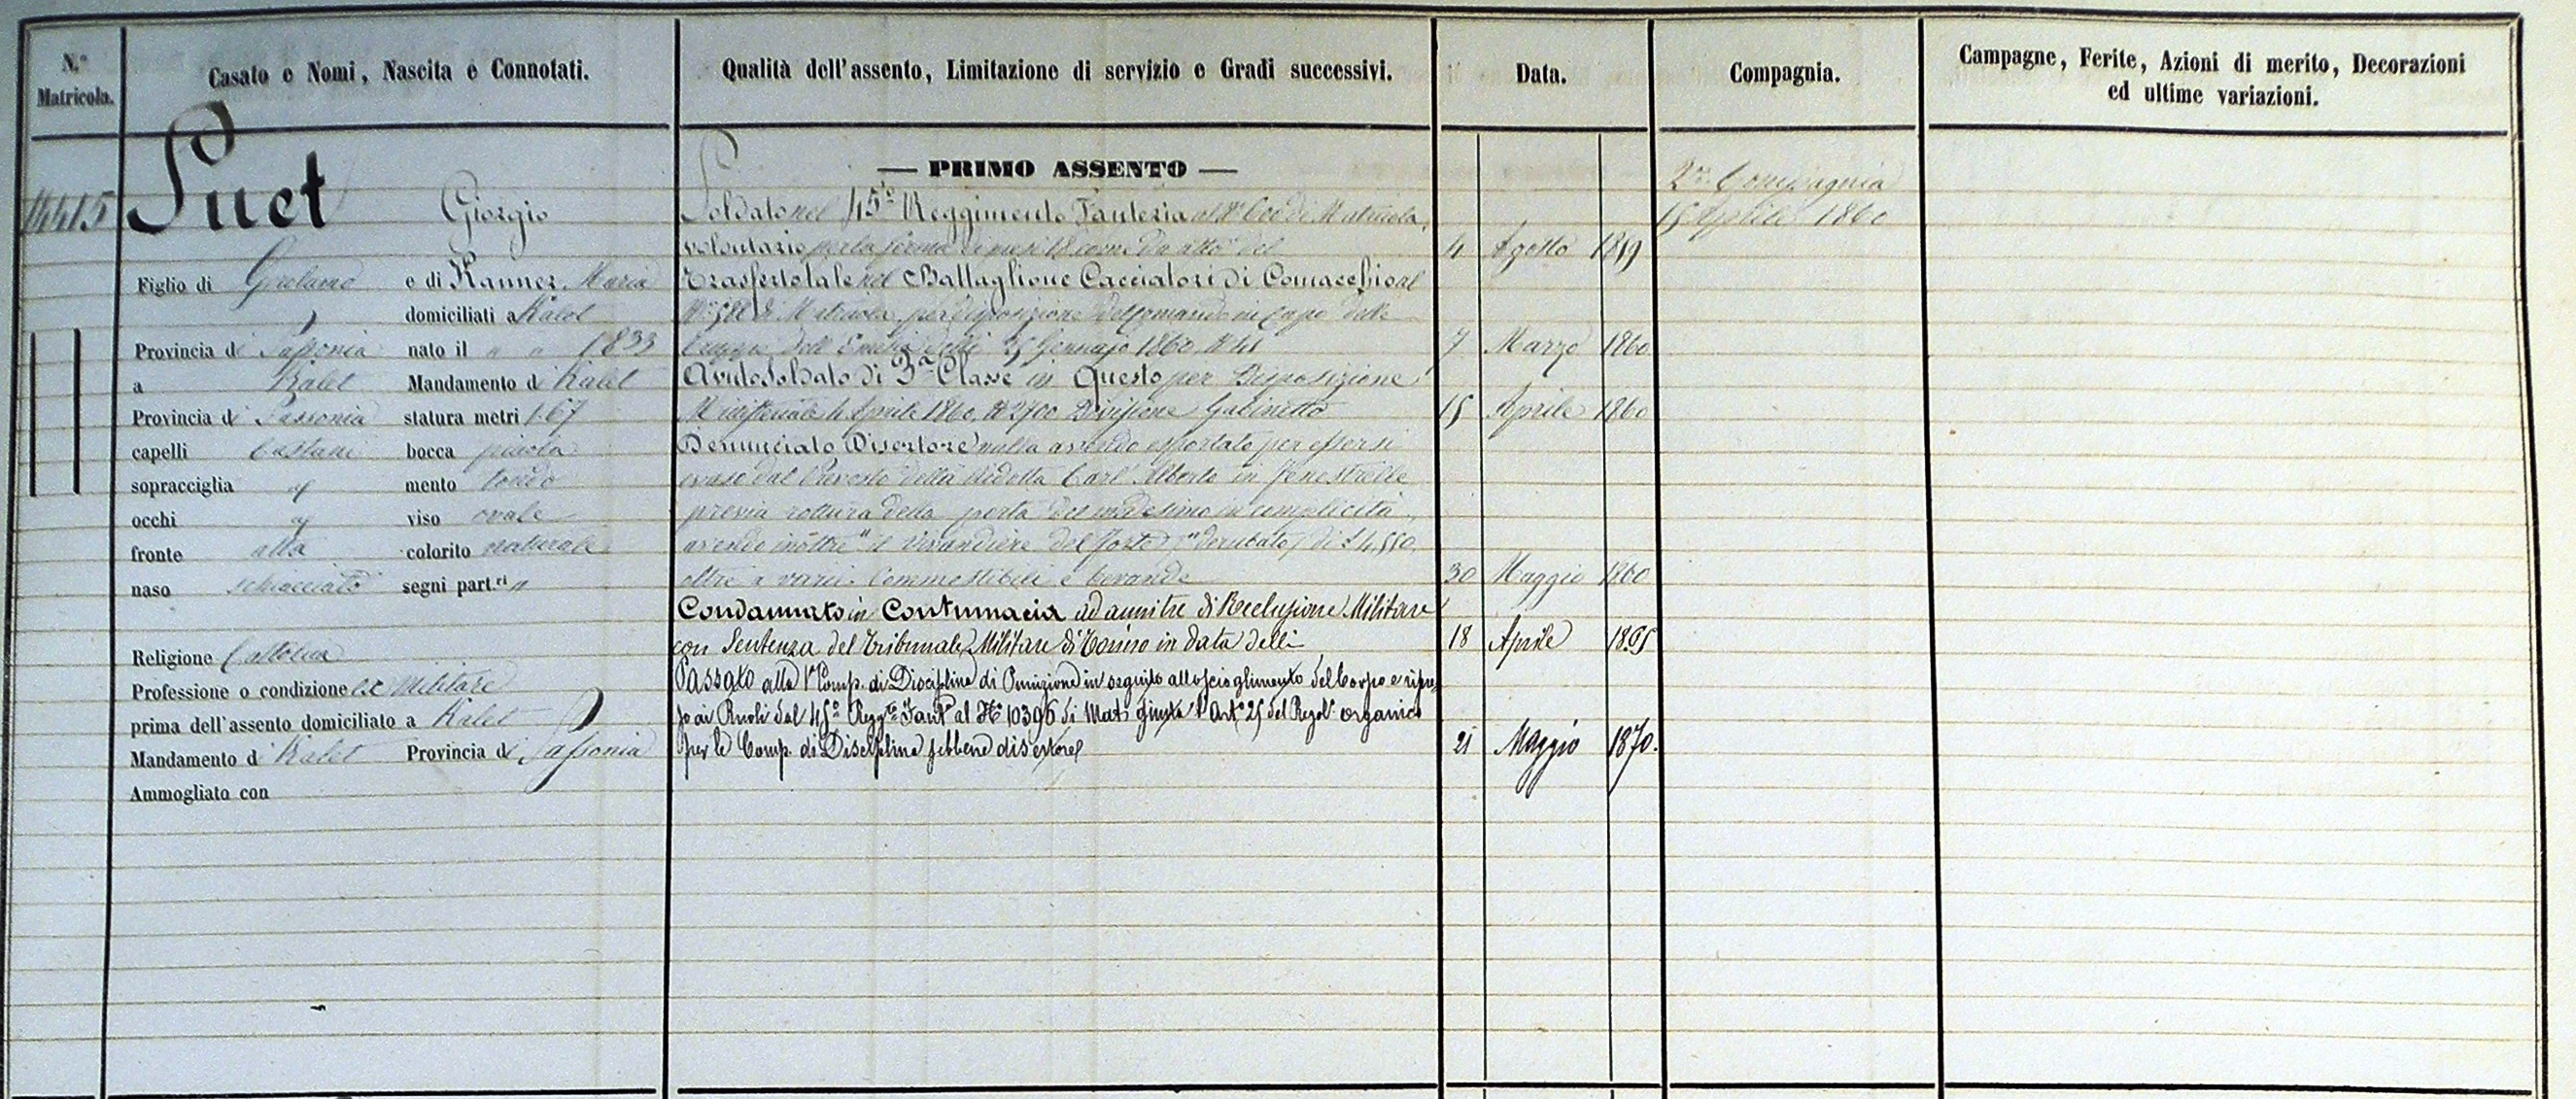 N.º Matricola.
Casato e Nomi, Nascita e Connotati.
Qualità dell'assento, Limitazione di servizio e Gradi successivi.
Data.
Compagnia.
Campagne, Ferite, Azioni di merito, Decorazioni
ed ultime variazioni.
14415
Suet Giorgio
Figlio di e di Kanner Maria
domiciliati a Kalet
Provincia di Sassonia nato il " " 1833
a Kalet Mandamento di Kalet
Provincia di Sassonia statura metri 1.67
capelli Castani bocca piccola
sopracciglia mento tondo
occhi viso ovale
fronte alta colorito naturale
naso schiacciato segni part.ri "
Religione Cattolica
Professione o condizione ex Militare
prima dell'assento domiciliato a Kalet
Mandamento di Kalet Provincia di Sassonia
Ammogliato con
— PRIMO ASSENTO —
Soldato nel 45º Reggimento Fanteria al Nº 600 di Matricola,
volontario per la ferma di mesi 18 come da atto del 4 Agosto 1859
Trasferto tale nel Battaglione Cacciatori di Comacchio al
Nº di Matricola per disposizione del Comando in Capo delle
truppe dell'Emilia delli 25 Gennajo 1860, Nº 41 7 Marzo 1860
Avuto Soldato di 3ª Classe in Questo per Disposizione
Ministeriale 4 Aprile 1860, Nº 2700 Divisione Gabinetto 15 Aprile 1860
Denunciato Disertore nulla avendo esportato per essersi
evaso dal della Ridotta Carl' Alberto in Fenestrelle
previa rottura della porta del medesimo in complicità,
avendo inoltre "il vivandiere del forte" "derubato" di £ 4,550,
oltre a varii Commestibili e bevande 30 Maggio 1860
Condannato in Contumacia ad anni tre di Reclusione Militare
con Sentenza del Tribunale Militare di Torino in data delli 18 Aprile
Passato alla 1ª Comp. di Disciplina di Punizione in seguito allo scioglimento del Corpo e ripre-
so ai Ruoli dal 45º Regg.to Fant.a al Nº 10396 di Mat.a giusta l'Art.º 25 del Regol.º organico
per le Comp. di Disciplina sebbene disertore 21 Maggio 1870.
2ª Compagnia
15 Aprile 1860